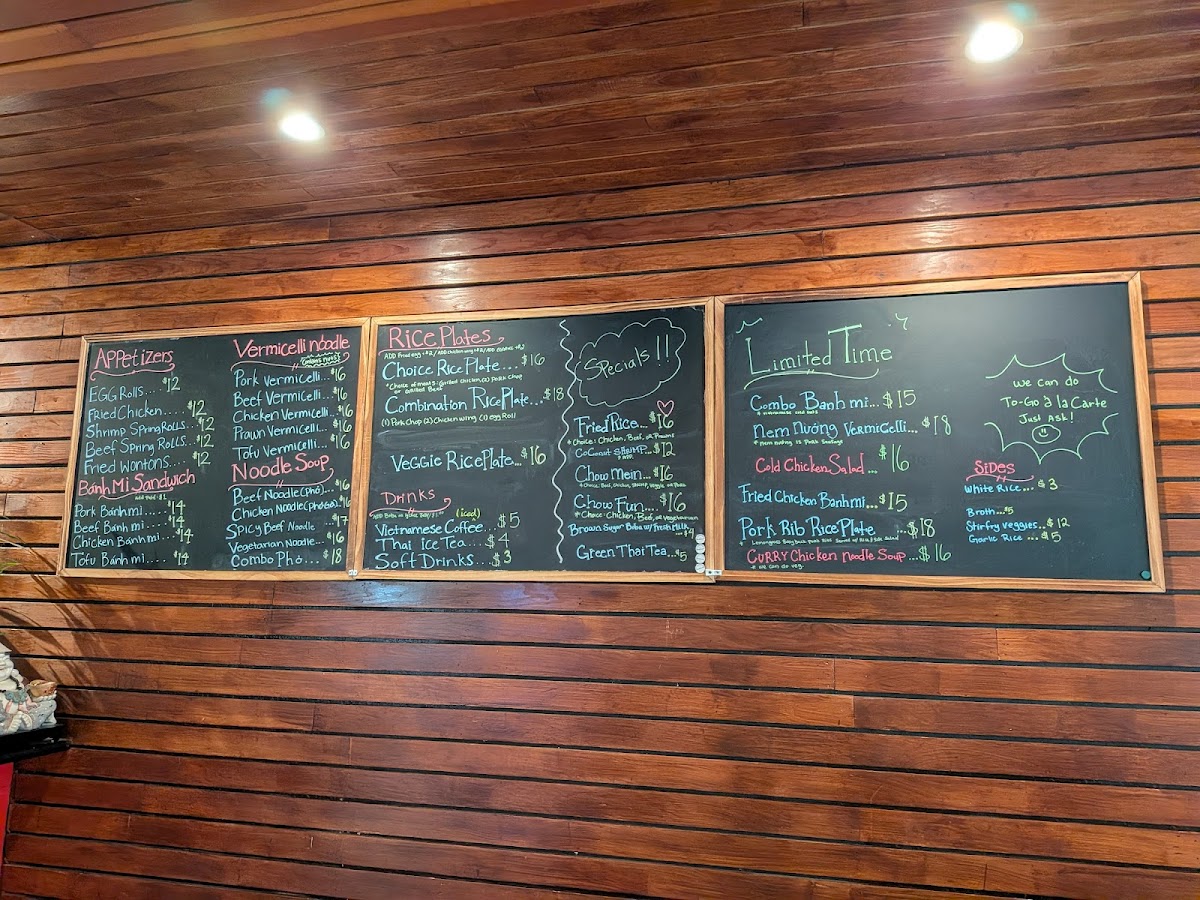 APPetizers
EGG Rolls.... $12
Fried Chicken..... $12
Shrimp Spring Rolls... $12
Beef Spring Rolls... $12
Fried Wontons.... $12
Bánh Mi Sandwich
Pork Bánh mi.... $14
Beef Bánh mi.... $14
Chicken Bánh mi... $14
Tofu Bánh mi.... $14
Vermicelli noodle
Pork Vermicelli... $16
Beef Vermicelli... $16
Chicken Vermicelli... $16
Prawn Vermicelli... $16
Tofu Vermicelli... $16
Noodle Soup
Beef Noodle (Phở)... $16
Chicken Noodle (Phở Gà).. $16
Spicy Beef Noodle... $17
Vegetarian Noodle... $16
Combo Phở.... $18
Rice Plates
Choice Rice Plate.... $16
Combination Rice Plate... $18
(1) Pork Chop (2) Chicken wing (1) egg Roll
Veggie Rice Plate... $16
Drinks
(iced)
Vietnamese Coffee... $5
Thai Ice Tea.... $4
Soft Drinks... $3
Specials!!
Fried Rice... $16
* Choice: Chicken, Beef, or Prawns
Coconut Shrimp.. $12
Chow Mein... $16
Chow Fun.... $16
* Choice: Chicken, Beef, or Vegetarian
Brown Sugar Boba w/ Fresh Milk
Green Thai Tea... $5
Limited Time
Combo Banh mi... $15
nem nướng Vermicelli... $18
* nem nướng is Pork Sausage
Cold Chicken Salad... $16
Fried Chicken Banh mi... $15
Pork Rib Rice Plate.... $18
CURRY Chicken Noodle Soup... $16
* we can do veg.
We can do
To-Go à la Carte
Just Ask!
Sides
White Rice... $3
Broth... $5
Stirfry Veggies.. $12
Garlic Rice... $5